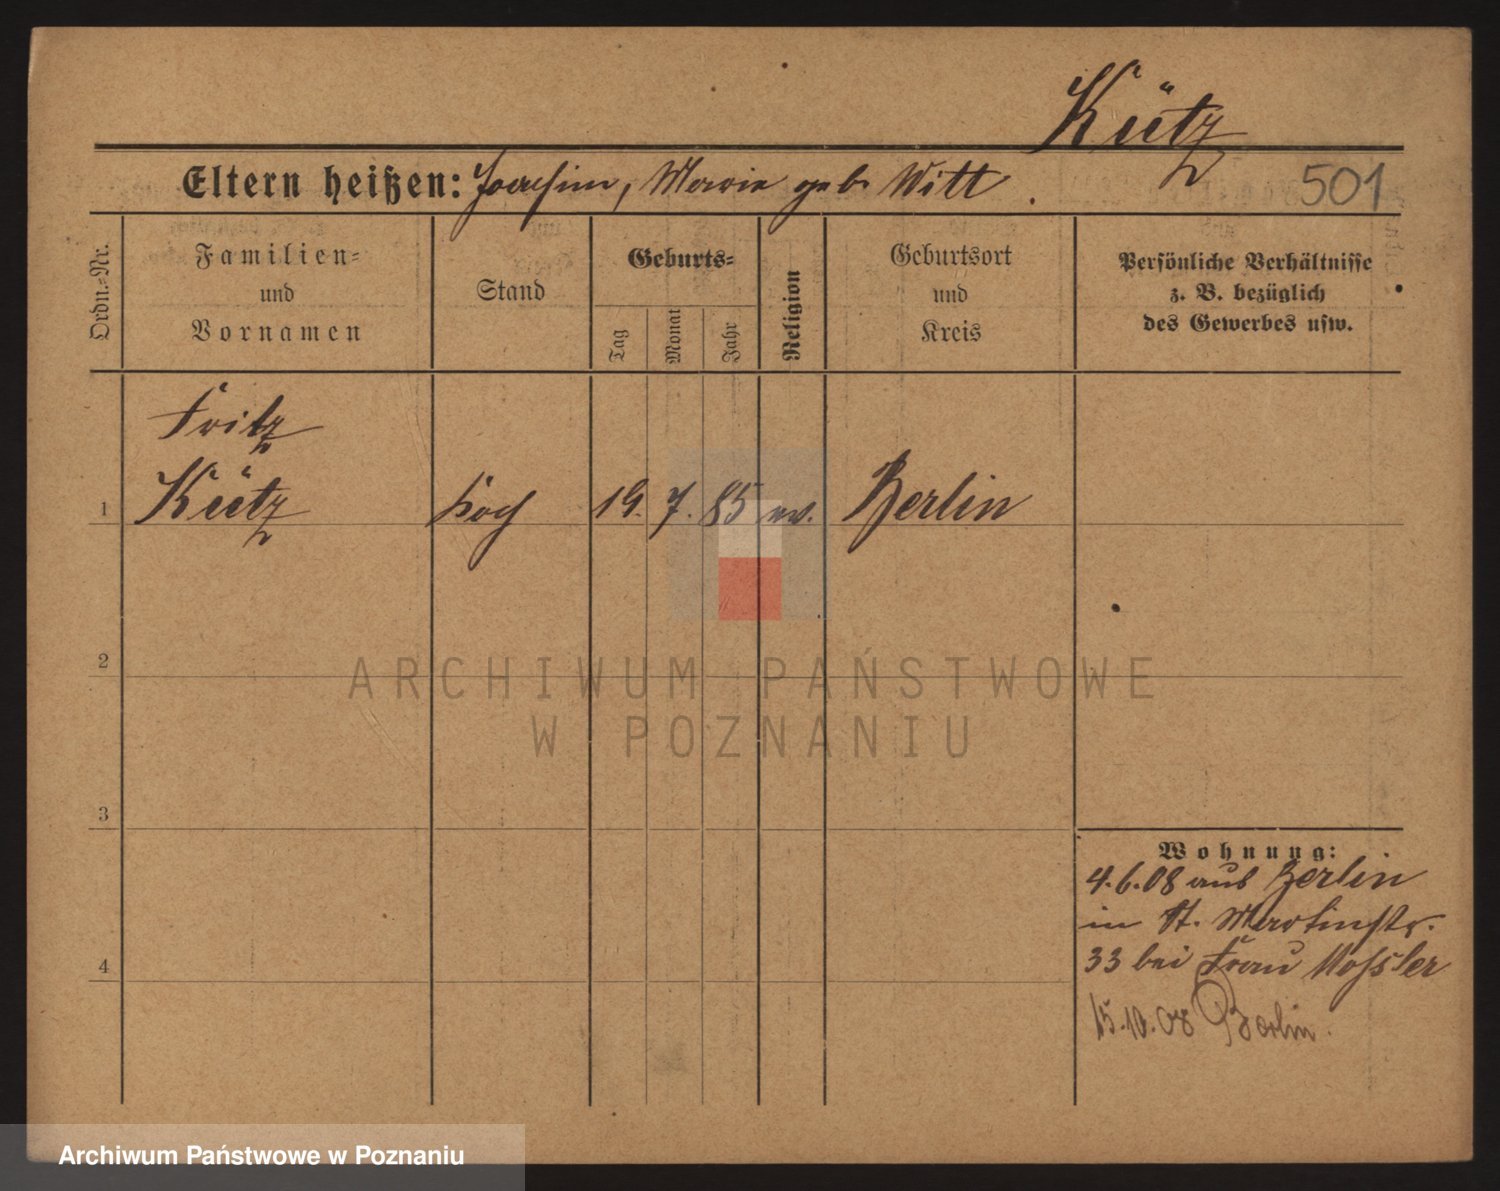 Kütz
Eltern heißen: Joachim, Marie geb. Witt.
501
Ordn.-Nr.
Familien-
und
Vornamen
Stand
Geburts-
Tag
Monat
Jahr
Religion
Geburtsort
und
Kreis
Persönliche Verhältnisse
z. B. bezüglich
des Gewerbes usw.
Fritz
1 Kütz Koch 19. 7. 85 ev. Berlin
2
ARCHIWUM PAŃSTWOWE
W POZNANIU
3
Wohnung:
4.6.08 aus Berlin
in St. Martinstr.
33 bei Frau Mossler
4
15.10.08 Berlin.
Archiwum Państwowe w Poznaniu